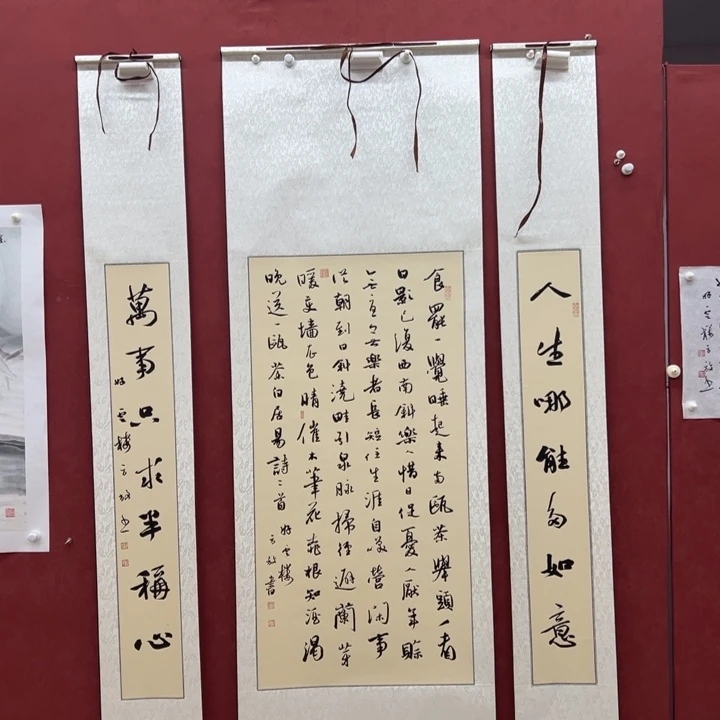 人生哪能多如意
食罷一覺睡起來兩甌茶舉頭看
日影已復西南斜樂人惜日促憂人厭年賒
無憂無樂者長短任生涯自咲營閑事
從朝到日斜澆畦引泉脈掃徑避蘭芽
暖變墻衣色晴催木筆花桃根知酒渴
晚送一甌茶白居易詩二首好雲樓
書
萬事只求半稱心
好雲樓